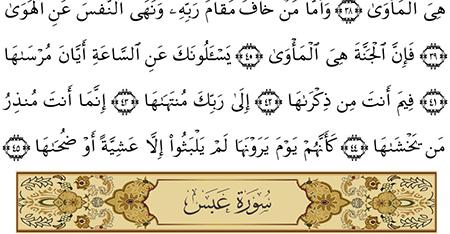 هِىَ ٱلْمَأْوَىٰ ﴿٣٩﴾ وَأَمَّا مَنْ خَافَ مَقَامَ رَبِّهِۦ وَنَهَى ٱلنَّفْسَ عَنِ ٱلْهَوَىٰ
﴿٣٩﴾ فَإِنَّ ٱلْجَنَّةَ هِىَ ٱلْمَأْوَىٰ ﴿٤٠﴾ يَسْـَٔلُونَكَ عَنِ ٱلسَّاعَةِ أَيَّانَ مُرْسَىٰهَا
﴿٤١﴾ فِيمَ أَنتَ مِن ذِكْرَىٰهَا ﴿٤٢﴾ إِلَىٰ رَبِّكَ مُنتَهَىٰهَا ﴿٤٣﴾ إِنَّمَآ أَنتَ مُنذِرُ
مَن يَخْشَىٰهَا ﴿٤٤﴾ كَأَنَّهُمْ يَوْمَ يَرَوْنَهَا لَمْ يَلْبَثُوٓا۟ إِلَّا عَشِيَّةً أَوْ ضُحَىٰهَا ﴿٤٥﴾
سُورَةُ عَبَسَ